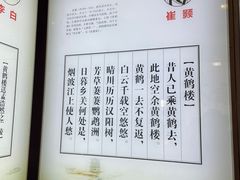 崔颢
【黄鹤楼】
昔人已乘黄鹤去，
此地空余黄鹤楼。
黄鹤一去不复返，
白云千载空悠悠。
晴川历历汉阳树，
芳草萋萋鹦鹉洲。
日暮乡关何处是，
烟波江上使人愁
李白
【黄鹤楼送孟浩然之广陵】